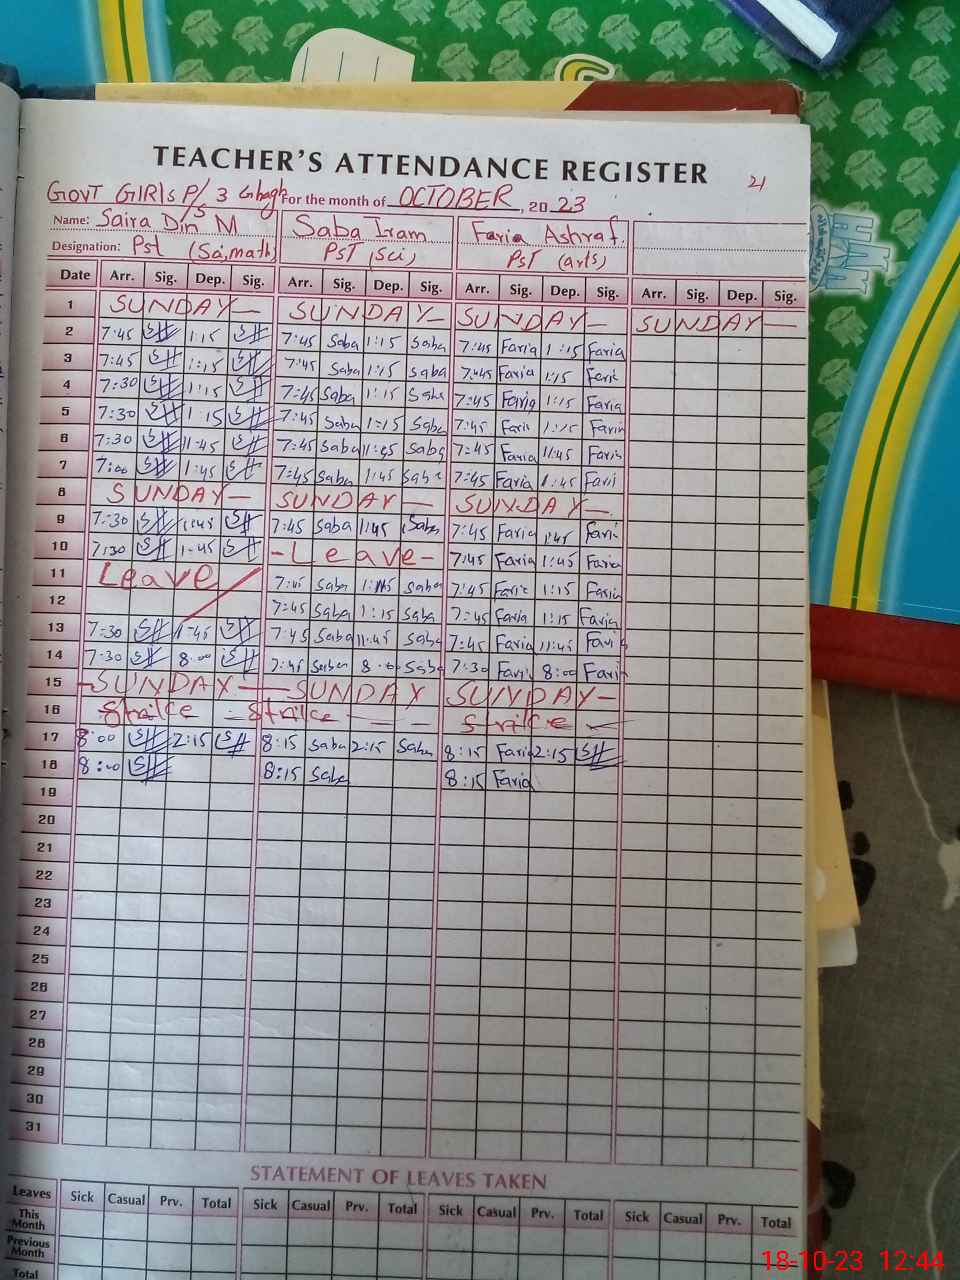 TEACHER'S ATTENDANCE REGISTER
21
GOVT GIRLS P/S 3 For the month of OCTOBER, 2023
Name: Saira Din M Saba Iram Faria Ashraf
Designation: Pst (Sci, math) PST (Sci) PST (arts)
Date Arr. Sig. Dep. Sig. Arr. Sig. Dep. Sig. Arr. Sig. Dep. Sig. Arr. Sig. Dep. Sig.
1 SUNDAY SUNDAY SUNDAY SUNDAY
2 7:45 1:15 7:45 Saba 1:15 Saba 7:45 Faria 1:15 Faria
3 7:45 1:15 7:45 Saba 1:15 Saba 7:45 Faria 1:15 Faria
4 7:30 1:15 7:45 Saba 1:15 Saba 7:45 Faria 1:15 Faria
5 7:30 1:15 7:45 Saba 1:15 Saba 7:45 Faria 1:15 Faria
6 7:30 11:45 7:45 Saba 11:45 Saba 7:45 Faria 11:45 Faria
7 7:00 1:45 7:45 Saba 1:45 Saba 7:45 Faria 1:45 Faria
8 SUNDAY SUNDAY SUNDAY
9 7:30 1:45 7:45 Saba 1:45 Saba 7:45 Faria 1:45 Faria
10 7:30 1:45 - Leave - 7:45 Faria 1:45 Faria
11 Leave 7:45 Saba Saba 7:45 Faria 1:15 Faria
12 7:45 Saba 1:15 Saba 7:45 Faria 1:15 Faria
13 7:30 11:45 7:45 Saba 11:45 Saba 7:45 Faria 11:45 Faria
14 7:30 8:00 7:45 Saba 8:00 Saba 7:30 Faria 8:00 Faria
15 SUNDAY SUNDAY SUNDAY
16 Strike Strike Strike
17 8:00 2:15 8:15 Saba 2:15 Saba 8:15 Faria 2:15
18 8:00 8:15 Saba 8:15 Faria
19
20
21
22
23
24
25
26
27
28
29
30
31
STATEMENT OF LEAVES TAKEN
Leaves Sick Casual Prv. Total Sick Casual Prv. Total Sick Casual Prv. Total Sick Casual Prv. Total
This Month
Previous Month
Total
18-10-23 12:44